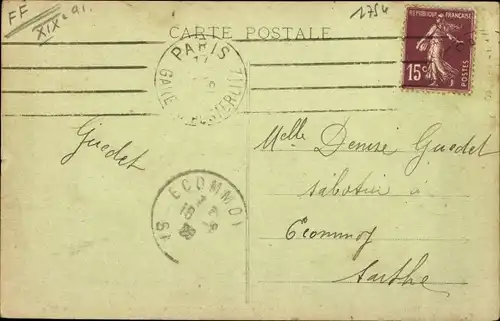 FF
XIXe a1.
1754
CARTE POSTALE
RÉPUBLIQUE FRANÇAISE
15c
POSTES
PARIS
GARE D'AUSTERLITZ
Guedet
Melle Denise Guedet
sabotier à
Ecommoy
Sarthe
ECOMMOY